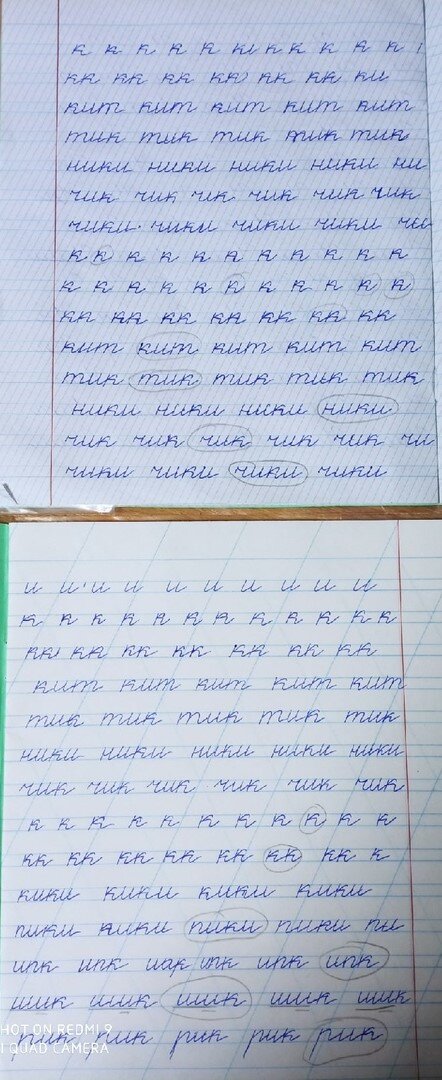 к к к к к к к к к к к
кк кк кк кк кк кк ки
кит кит кит кит кит
тик тик тик тик тик
ники ники ники ники ни
чик чик чик чик чик чик
чики чики чики чики чи
к к к к к к к к к к к
к к к к к к к к к к к
кк кк кк кк кк кк кк
кит кит кит кит кит
тик тик тик тик тик
ники ники ники ники
чик чик чик чик чик чи
чики чики чики чики
и и и и и и и и и и
к к к к к к к к к к к
кк кк кк кк кк кк кк
кит кит кит кит кит
тик тик тик тик тик
ники ники ники ники ники
чик чик чик чик чик чик
к к к к к к к к к к к
кк кк кк кк кк кк кк к
кики кики кики кики
пики кики пики пики пи
ипк ипк ипк ипк ипк
шик шик шик шик шик
SHOT ON REDMI 9
AI QUAD CAMERA
пик рик рик рик рик